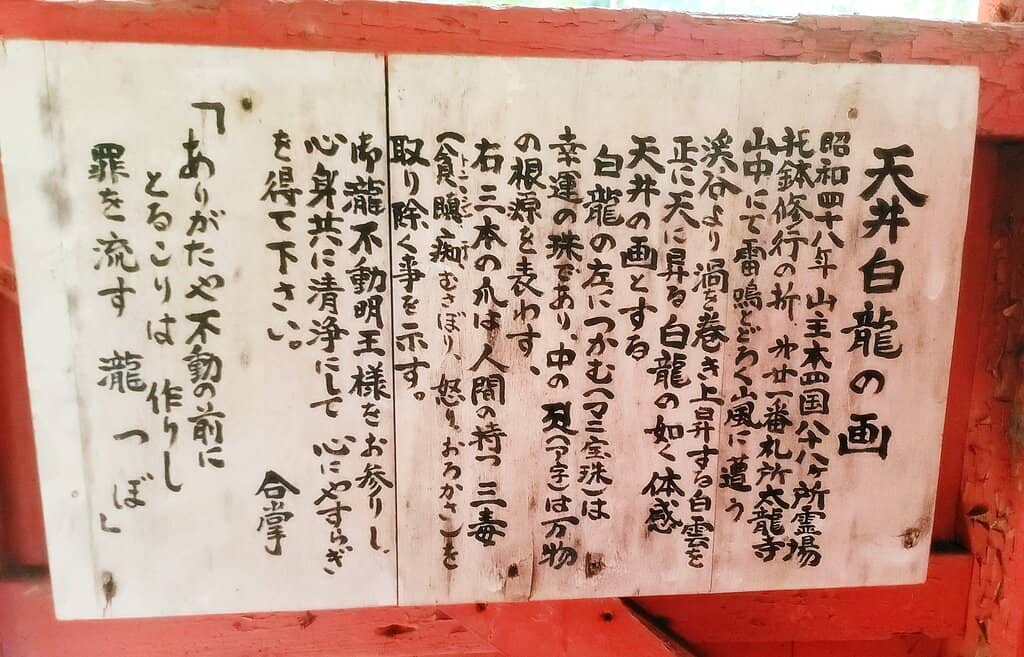 天井白龍の画
昭和四十八年 山主本四国八十八ヶ所霊場
托鉢修行の折、廿一番札所太龍寺
山中にて雷鳴とどろく山風に遭う
渓谷より渦を巻き上昇する白雲を
正に天に昇る白龍の如く体感
天井の画とする
白龍の左につかむ(マニ宝珠)は
幸運の珠であり、中の(ア字)は万物
の根源を表わす、
右三本の爪は人間の持つ三毒
(貪瞋痴むさぼり、怒り、おろかさ)を
取り除く事を示す。
御瀧不動明王様をお参りし、
心身共に清浄にして 心にやすらぎ
を得て下さい。
合掌
「ありがたや不動の前に
とるこりは 作りし
罪を流す 瀧つぼ」